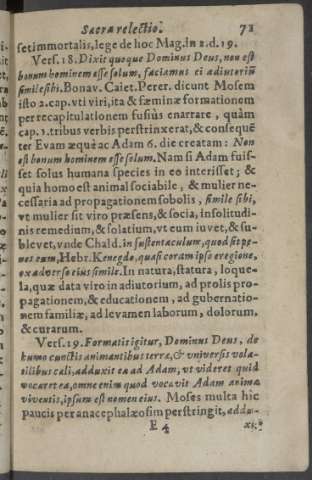 Sacra relectio. 71
set immortalis, lege de hoc Mag. in 2. d. 19.
Vers. 18. Dixit quoque Dominus Deus, non est
bonum hominem esse solum, faciamus ei adiutoriũ
simile sibi. Bonav. Caiet. Perer. dicunt Mosem
isto 2. cap. vti viri, ita & fœminæ formationem
per recapitulationem fusiùs enarrare, quàm
cap. 1. tribus verbis perstrinxerat, & consequẽ
ter Evam æquè ac Adam 6. die creatam: Non
est bonum hominem esse solum. Nam si Adam fuis-
set solus humana species in eo interisset; &
quia homo est animal sociabile, & mulier ne-
cessaria ad propagationem sobolis, simile sibi,
vt mulier sit viro præsens, & socia, in solitudi-
nis remedium, & solatium, vt eum iuvet, & su-
blevet, vnde Chald. in sustentaculum, quod sit pe-
nes eum, Hebr. Kenegdo, quasi coram ipso e regione,
ex adverso eius simile. In natura, statura, loque-
la, quæ data viro in adiutorium, ad prolis pro-
pagationem, & educationem, ad gubernatio-
nem familiæ, ad levamen laborum, dolorum,
& curarum.
Vers. 19. Formatis igitur, Dominus Deus, de
humo cunctis animantibus terræ, & universis vola-
tilibus cæli, adduxit ea ad Adam, vt videret quid
vocaret ea, omne enim quod vocavit Adam animæ
viventis, ipsum est nomen eius. Moses multa hic
paucis per anacephalæosim perstringit, addu-
E 4 xit